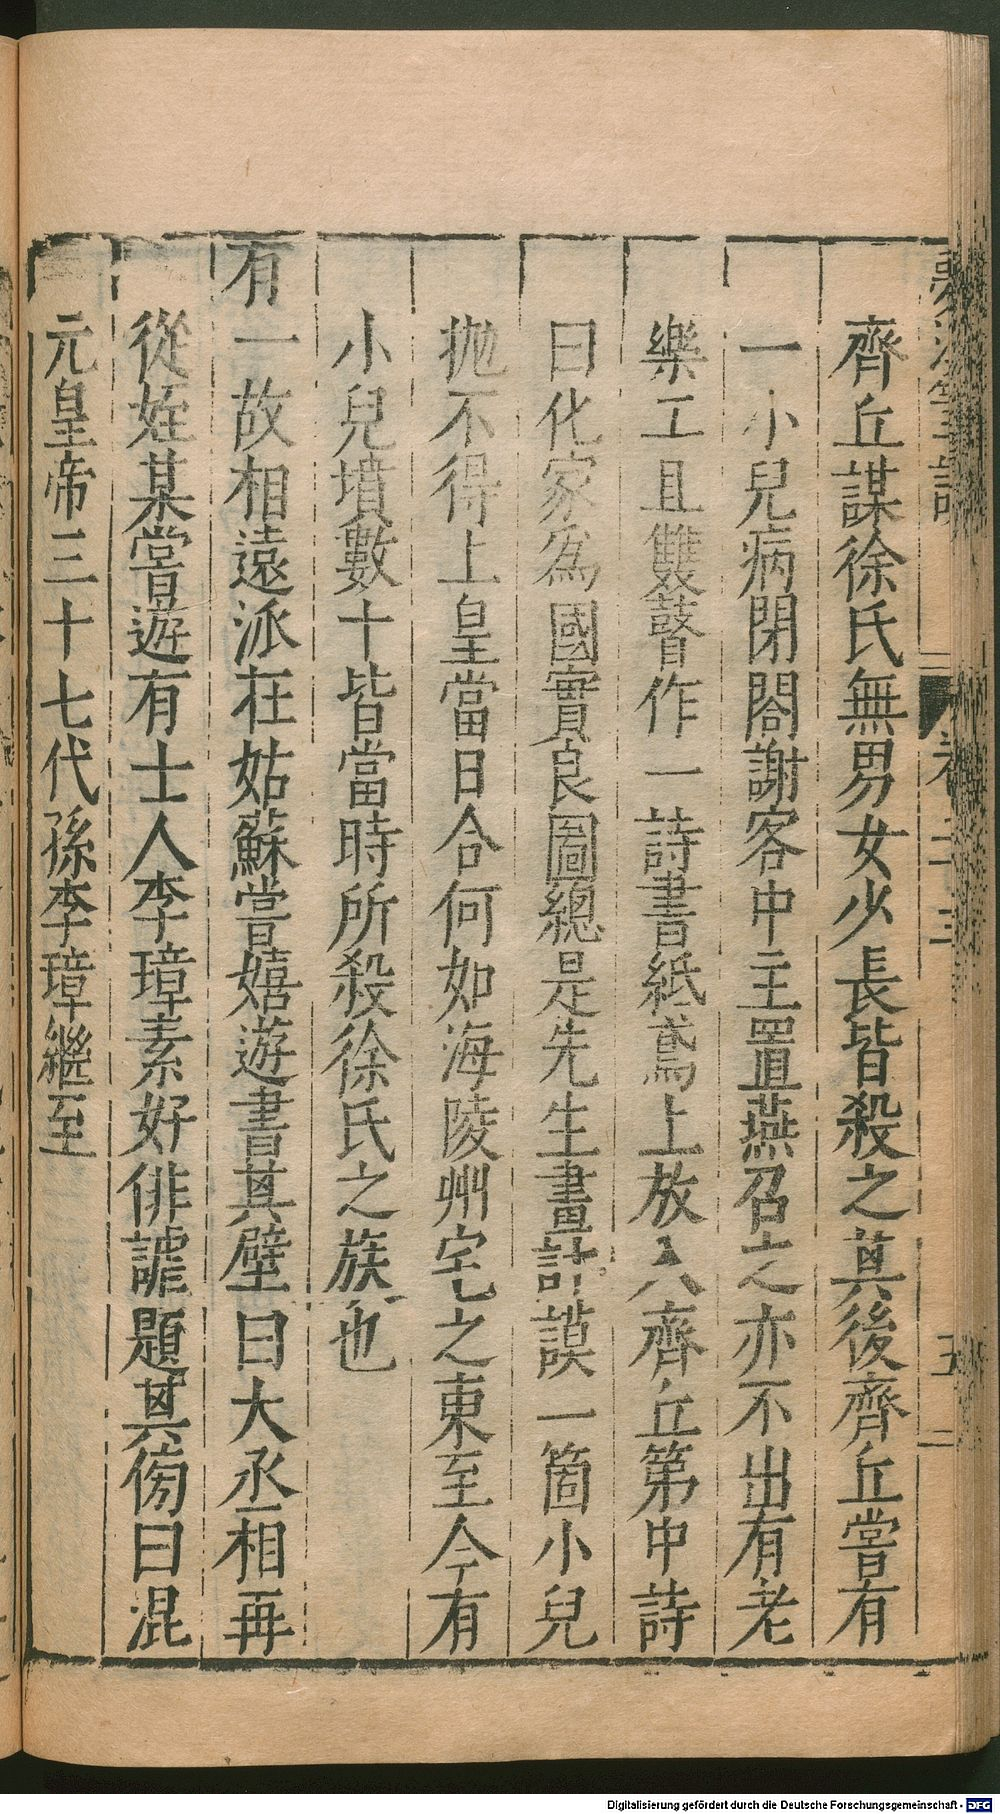 齊丘謀徐氏無男女少長皆殺之其後齊丘嘗有
一小兒病閉閤謝客中主置燕召之亦不出有老
樂工且雙瞽作一詩書紙鳶上放入齊丘第中詩
曰化家為國實良圖總是先生畫計謨一箇小兒
抛不得上皇當日合何如海陵州宅之東至今有
小兒墳數十皆當時所殺徐氏之族也
有一故相遠派在姑蘇嘗嬉遊書其壁曰大丞相再
從姪某嘗遊有士人李璋素好俳謔題其傍曰混
元皇帝三十七代孫李璋繼至
Digitalisierung gefördert durch die Deutsche Forschungsgemeinschaft - DFG